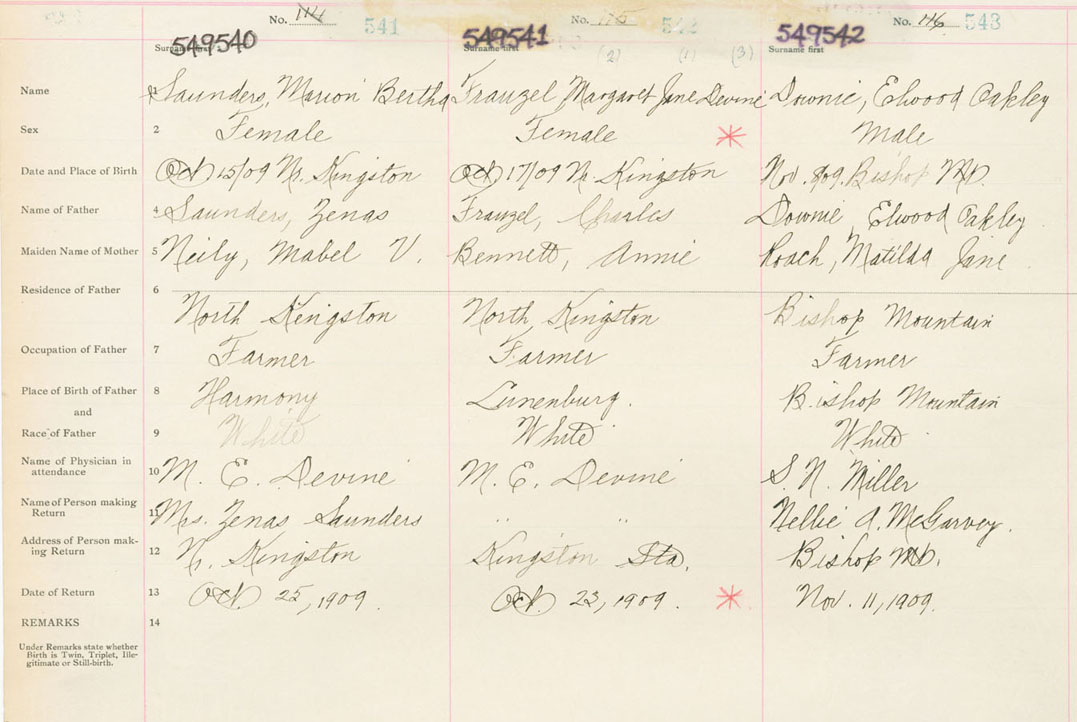 No. 114 541 No. 115 542 No. 116 543
549540 549541 549542
Surname first Surname first (2) (1) (3) Surname first
Name Saunders, Marion Bertha Frauzel Margaret Jane Devine Downie, Elwood Oakley
Sex 2 Female Female * Male
Date and Place of Birth Oct 15/09 Nr. Kingston Oct. 17/09 Nr. Kingston Nov. 8/09. Bishop Mt.
Name of Father 4 Saunders, Zenas Frauzel, Charles Downie, Elwood Oakley
Maiden Name of Mother 5 Neily, Mabel V. Bennett, Annie Roach, Matilda Jane
Residence of Father 6
North Kingston North Kingston Bishop Mountain
Occupation of Father 7 Farmer Farmer Farmer
Place of Birth of Father 8 Harmony Lunenburg. Bishop Mountain
and
Race of Father 9 White White White
Name of Physician in
attendance 10 M. E. Devine M. E. Devine S. N. Miller
Name of Person making
Return 11 Mrs. Zenas Saunders " " Nellie A. McGarvey.
Address of Person mak-
ing Return 12 N. Kingston Kingston Sta. Bishop Mt.
Date of Return 13 Oct. 25, 1909. Oct. 23, 1909. * Nov. 11, 1909.
REMARKS 14
Under Remarks state whether
Birth is Twin, Triplet, Ille-
gitimate or Still-birth.